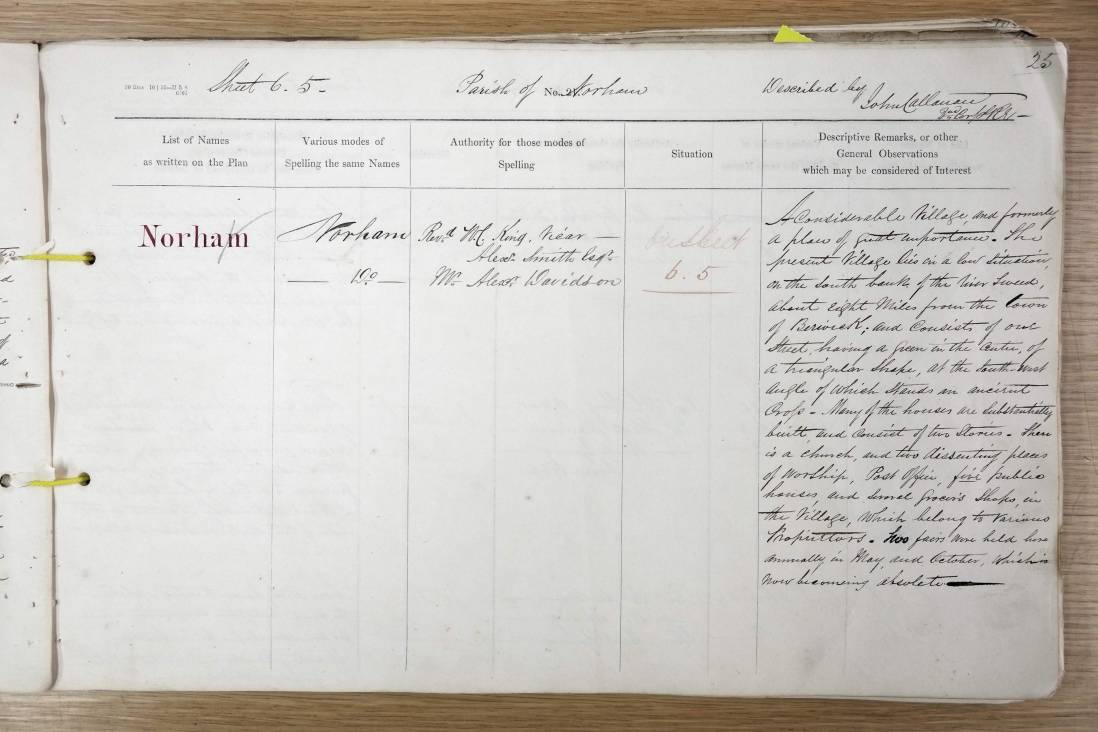 25
Sheet 6. 5 -
Parish of No. 2 Norham
Described by
John Callanan
List of Names
as written on the Plan
Various modes of
Spelling the same Names
Authority for those modes of
Spelling
Situation
Descriptive Remarks, or other
General Observations
which may be considered of Interest
Norham
Norham
Do
Revd. Wm. King. Vicar —
Alexr. Smith Esqr.
Mr. Alexr. Davidson
on Sheet
6. 5
A Considerable Village, and formerly
a place of great importance. The
present Village lies in a low situation,
on the South bank of the River Tweed,
about eight Miles from the town
of Berwick; and Consists of one
Street, having a green in the Center, of
a triangular Shape, at the South-west
angle of which Stands an ancient
Cross - Many of the houses are Substantially
built and Consist of two Stories. There
is a church, and two dissenting places
of Worship, Post Office, five public
houses, and several Grocer's Shops, in
the Village, Which belong to Various
Proprietors. Two fairs were held here
annually in May, and October, which is
now becoming obsolete